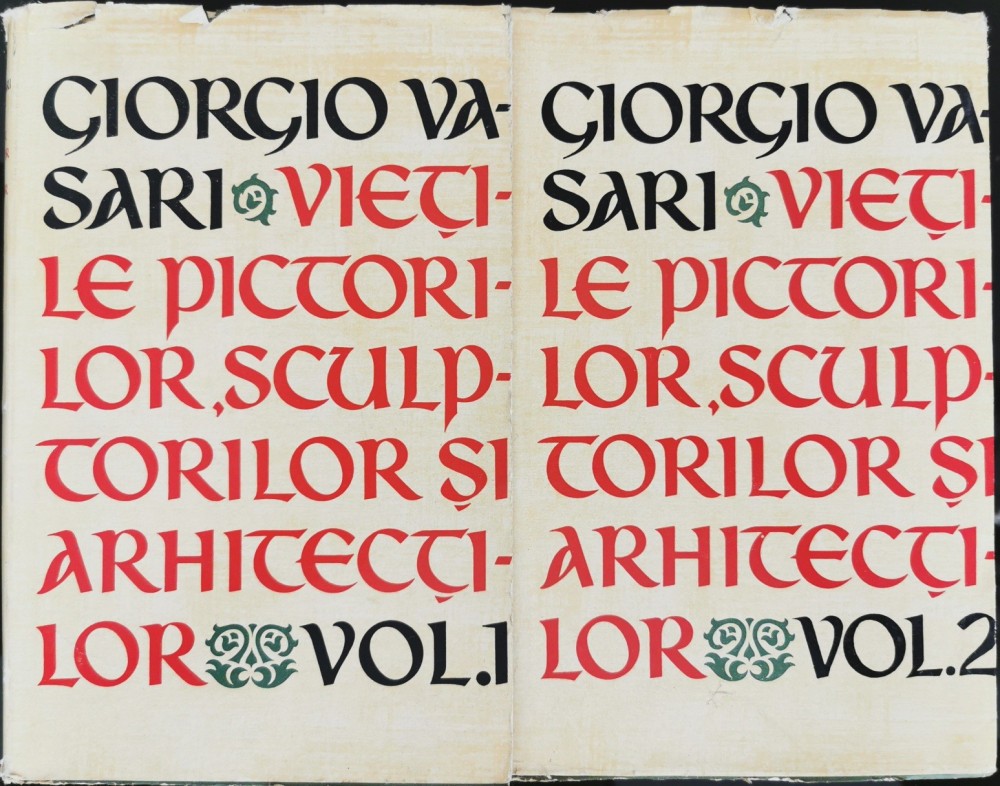 GIORGIO VA-
SARI VIEȚI-
LE PICTORI-
LOR, SCULP-
TORILOR ȘI
ARHITECȚI-
LOR VOL.1
GIORGIO VA-
SARI VIEȚI-
LE PICTORI-
LOR, SCULP-
TORILOR ȘI
ARHITECȚI-
LOR VOL.2